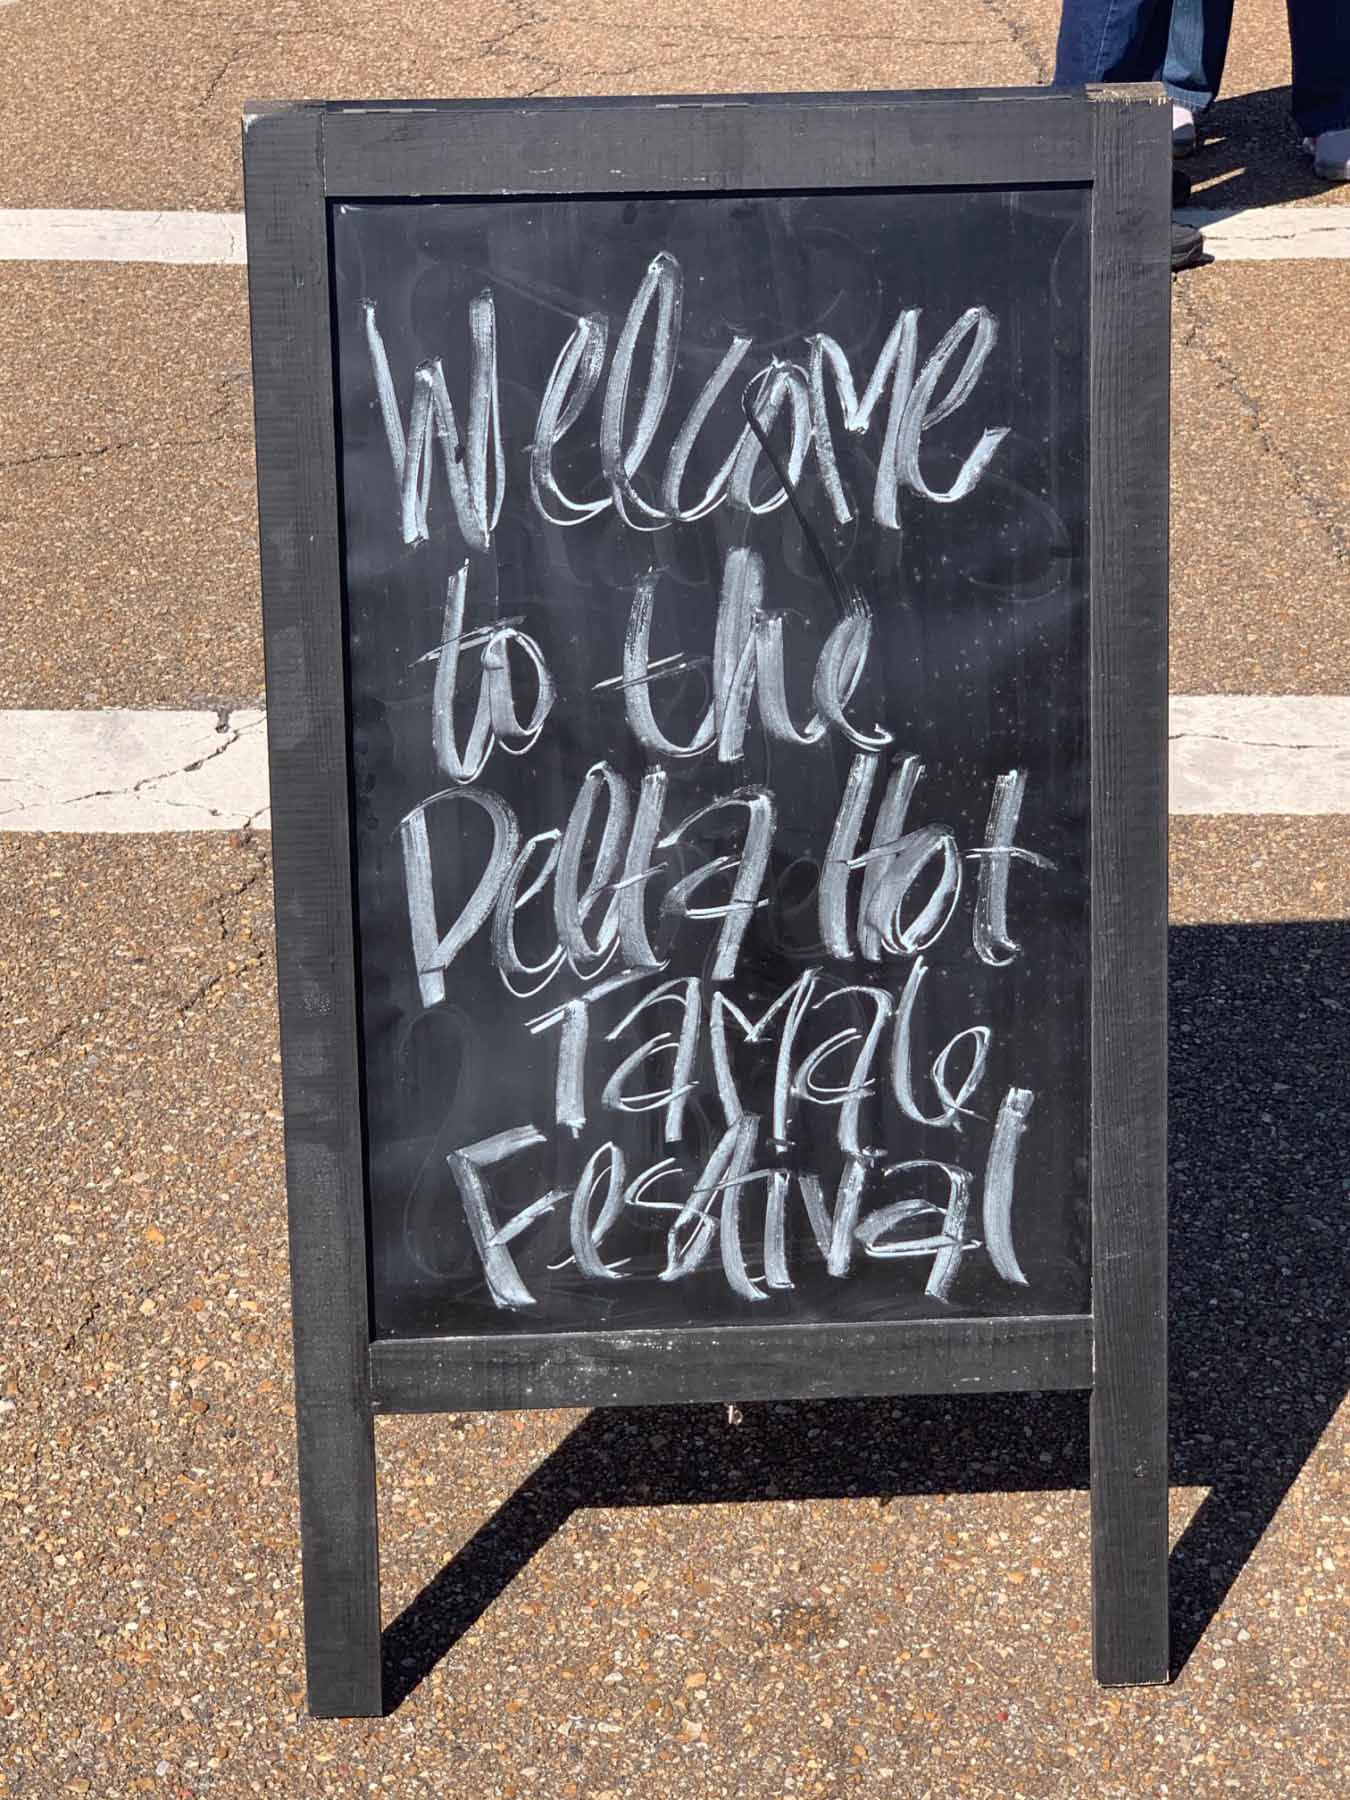 Welcome
to the
Delta Hot
Tamale
Festival